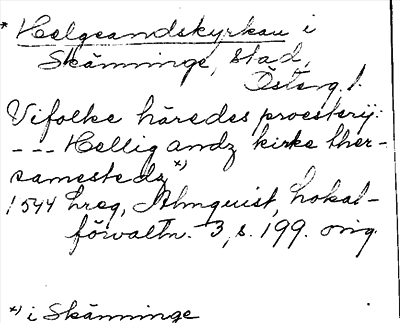 * Helgeandskyrkan i
Skänninge, stad,
Österg. l.
Vifolke häredes proesterij:
--- Hellig andz kirke ther-
samestedz *)
1544 hreg, Almquist, Lokal-
förvaltn. 3, s. 199. orig.
*) i Skänninge